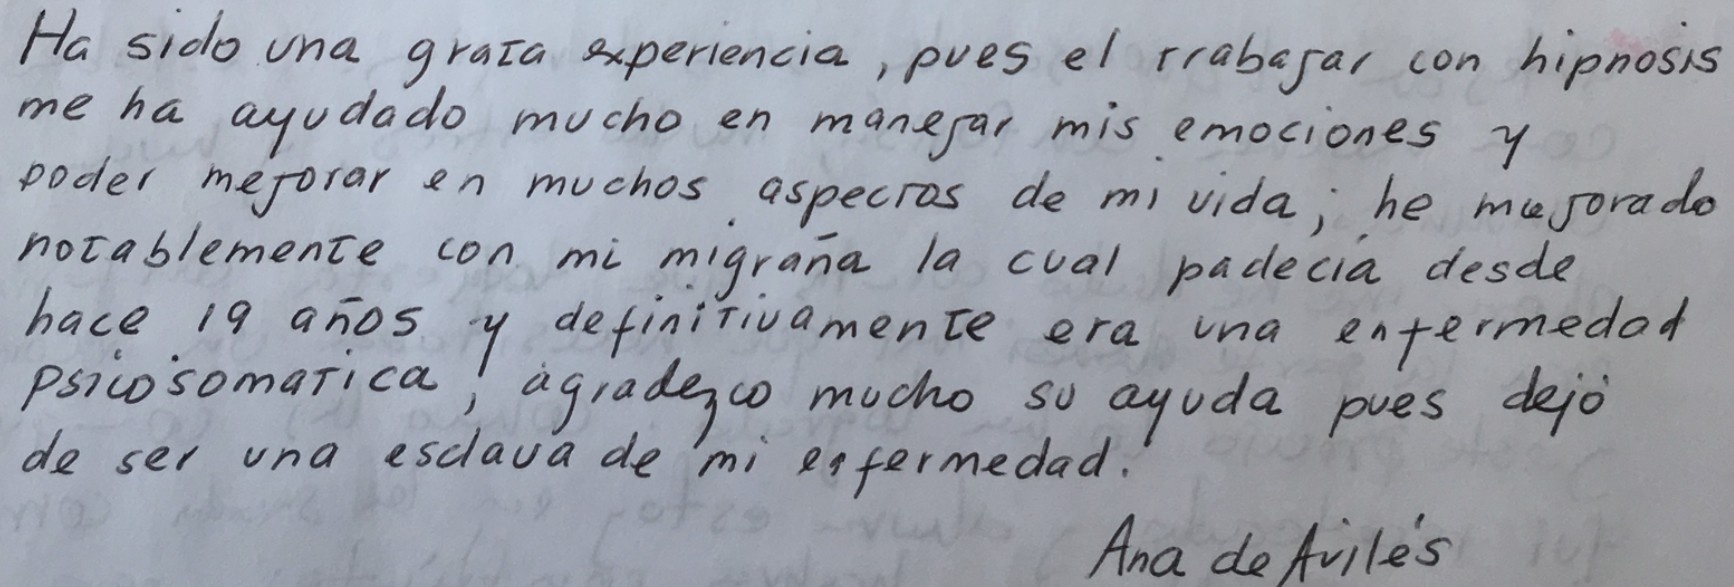 Ha sido una grata experiencia, pues el trabajar con hipnosis
me ha ayudado mucho en manejar mis emociones y
poder mejorar en muchos aspectos de mi vida; he mejorado
notablemente con mi migraña la cual padecía desde
hace 19 años y definitivamente era una enfermedad
psicosomatica, agradezco mucho su ayuda pues dejó
de ser una esclava de mi enfermedad.
Ana de Avilés